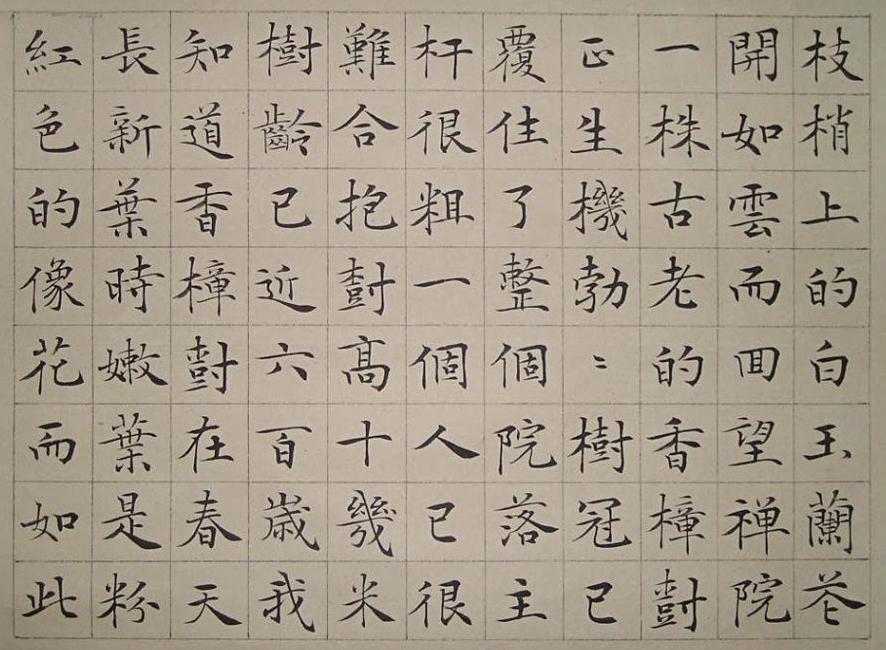 枝梢上的白玉蘭花
開如雲而回望禅院
一株古老的香樟樹
正生機勃〻樹冠已
覆住了整個院落主
杆很粗一個人已很
難合抱樹高十幾米
樹齡已近六百歲我
知道香樟樹在春天
長新葉時嫩葉是粉
紅色的像花而如此